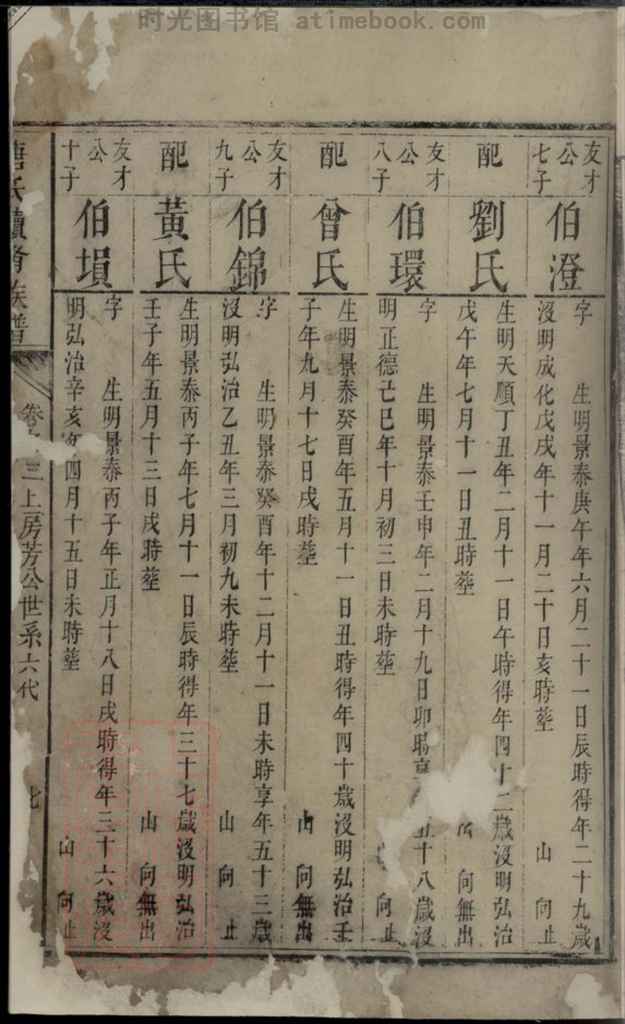 时光图书馆 atimebook.com
友才公七子
伯澄
字 生明景泰庚午年六月二十一日辰時得年二十九歲
沒明成化戊戌年十一月二十日亥時塟 山 向止
配
劉氏
生明天順丁丑年二月十一日午時得年四十二歲沒明弘治
戊午年七月十一日丑時塟 向無出
友才公八子
伯環
字 生明景泰壬申年二月十九日卯時享 十八歲沒
明正德己巳年十月初三日未時塟 向止
配
曾氏
生明景泰癸酉年五月十一日丑時得年四十歲沒明弘治壬
子年九月十七日戌時塟 山 向無出
友才公九子
伯錦
字 生明景泰癸酉年十二月十一日未時享年五十三歲
沒明弘治乙丑年三月初九未時塟 山 向止
配
黃氏
生明景泰丙子年七月十一日辰時得年三十七歲沒明弘治
壬子年五月十三日戌時塟 山 向無出
友才公十子
伯塤
字 生明景泰丙子年正月十八日戌時得年三十六歲沒
明弘治辛亥年四月十五日未時塟 山 向止
氏續脩族譜
卷 三上房芳公世系六代